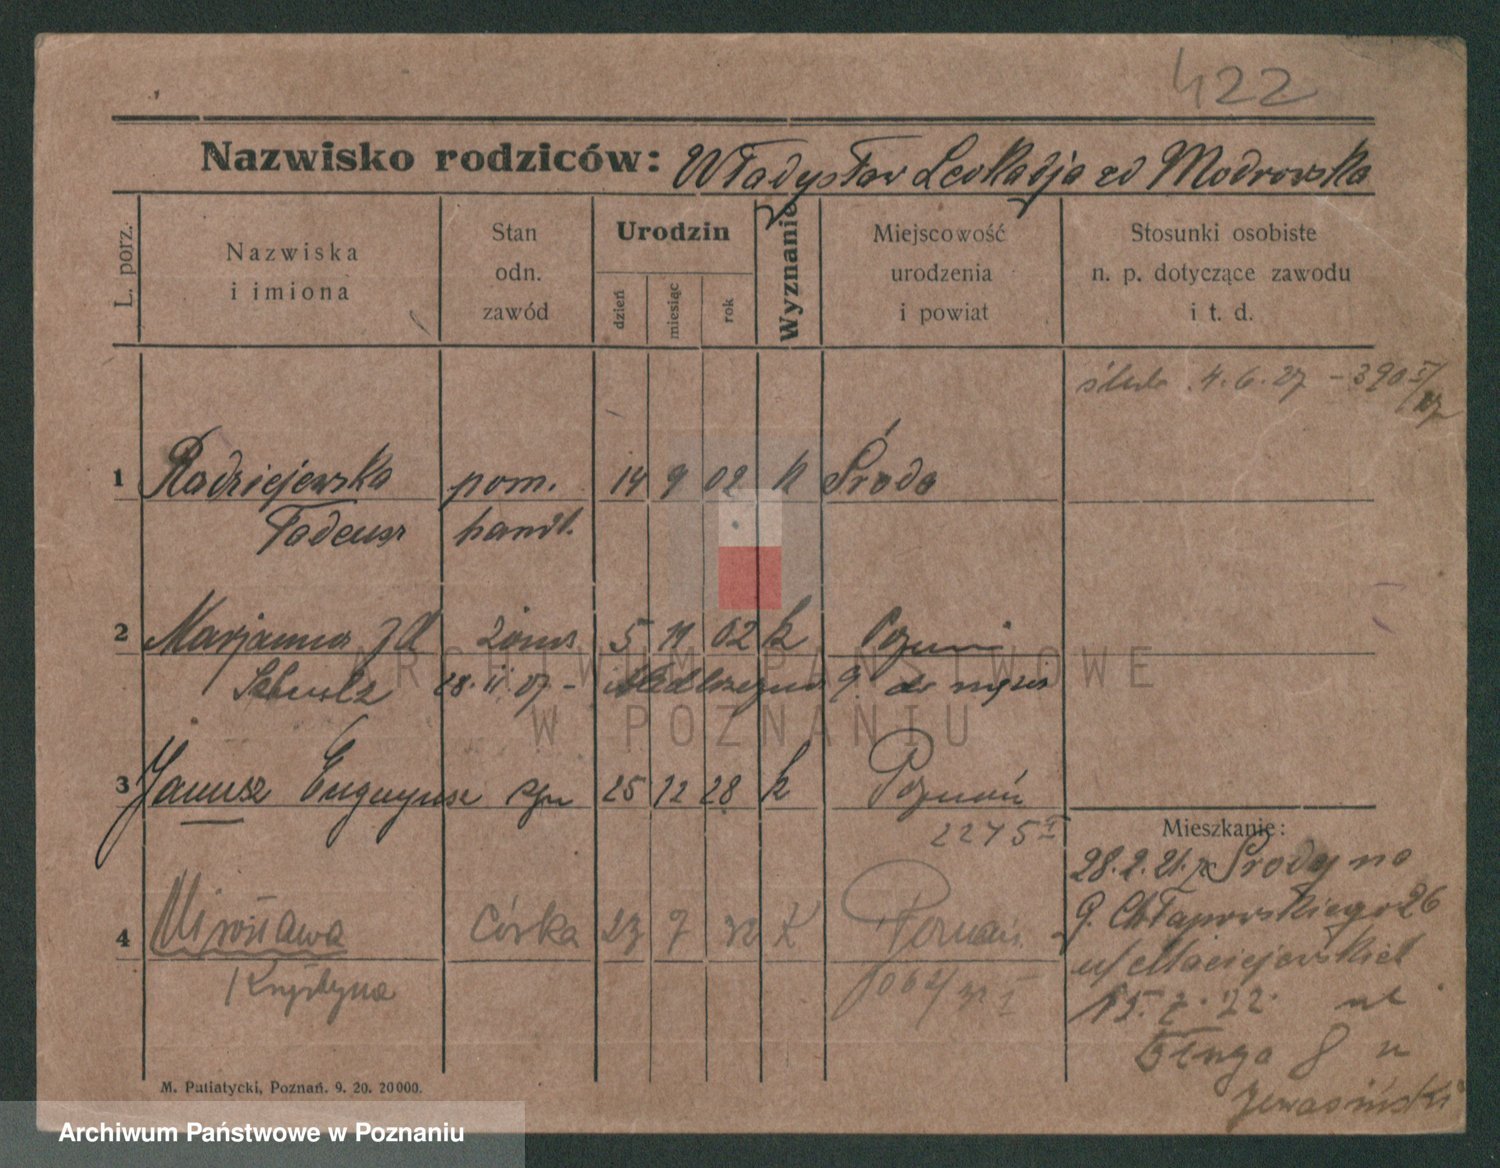 422
Nazwisko rodziców: Władysław Leokadja zd Modrowska
L. porz.
Nazwiska
i imiona
Stan
odn.
zawód
Urodzin
dzień
miesiąc
rok
Wyznanie
Miejscowość
urodzenia
i powiat
Stosunki osobiste
n. p. dotyczące zawodu
i t. d.
4.6.27 - 390
1 Radziejewska pom. 14 9 02 k Środa
Tadeusz handl.
2 Marjanna 5 11 02 k
3 Janusz Eugenjusz syn 25 12 28 k Poznań
2275 I
4 Mirosława córka 23 7 32 k Poznań
Krystyna
Mieszkanie:
28.2.21. z Środy na
G. Chłapowskiego 26
u/ Maciejewskich
15.7.22. ul
Długa 8 u
M. Putiatycki, Poznań. 9. 20. 20000.
ARCHIWUM PAŃSTWOWE
W POZNANIU
Archiwum Państwowe w Poznaniu